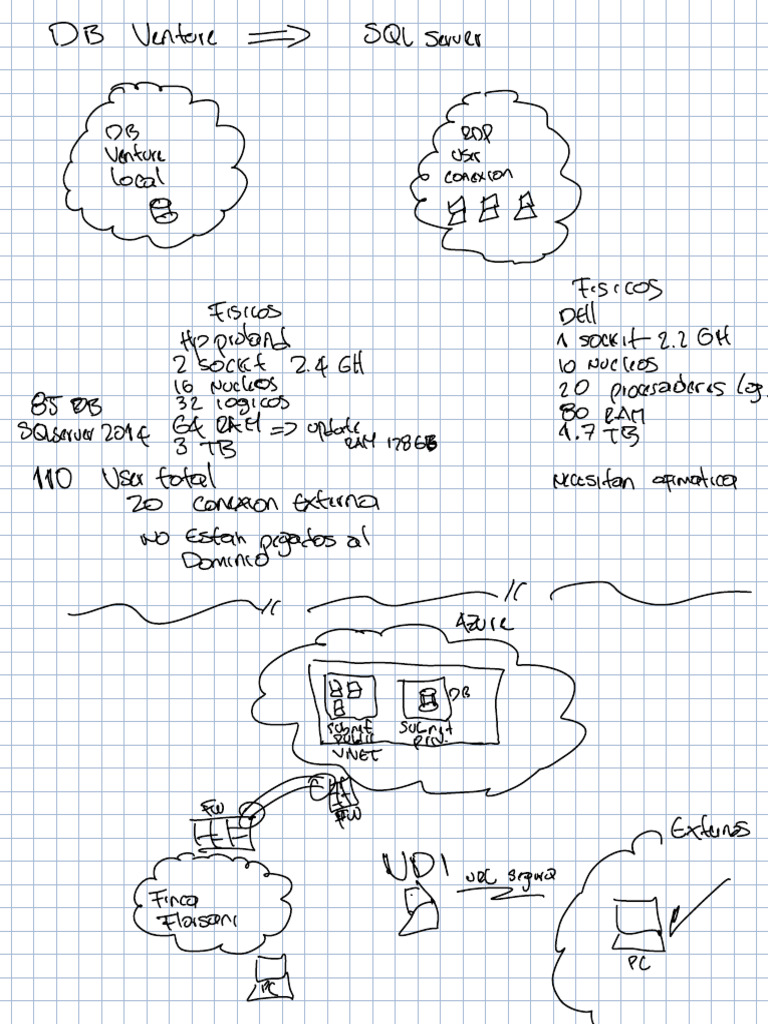 DB Venture ⇒ SQL Server
DB
Venture
Local
RDP
User
Conexion
Fisicos
Hp proliand
2 Sockit 2.4 GH
16 Nucleos
32 Logicos
64 RAM => update
RAM 128GB
3 TB
85 DB
SQLserver 2014
110 User total
20 Conexion Externa
No Estan pegados al
Dominio
Fisicos
Dell
1 Sockit 2.2 GH
10 Nucleos
20 procesadores Log.
80 RAM
1.7 TB
Necesitan ofimatica
Azure
DB
Subnet
Public
Subnet
Priv.
VNET
FW
FW
Finca
PC
VDI
Externos
PC